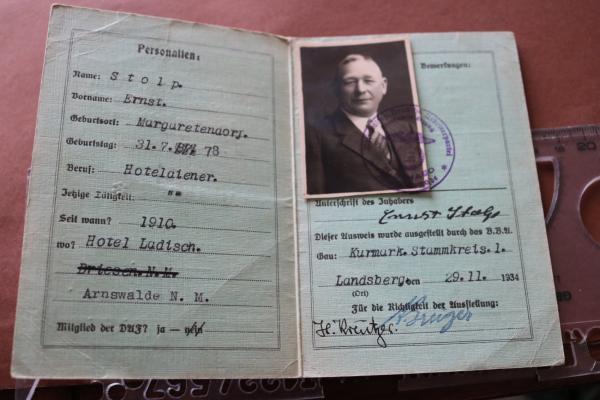 Personalien:
Name: Stolp.
Vorname: Ernst.
Geburtsort: Margaretendorf.
Geburtstag: 31.7. 78
Beruf: Hoteldiener.
Jetzige Tätigkeit: ""
Seit wann? 1910.
wo? Hotel Ladisch.
Driesen N.M.
Arnswalde N. M.
Mitglied der DAF? ja — nein
Bemerkungen:
Unterschrift des Inhabers
Ernst Stolp
Dieser Ausweis wurde ausgestellt durch das B.B.A.
Gau: Kurmark. Stammkreis. 1.
Landsberg den 29.11. 1934
(Ort)
Für die Richtigkeit der Ausstellung:
H. Kreutzer.
20